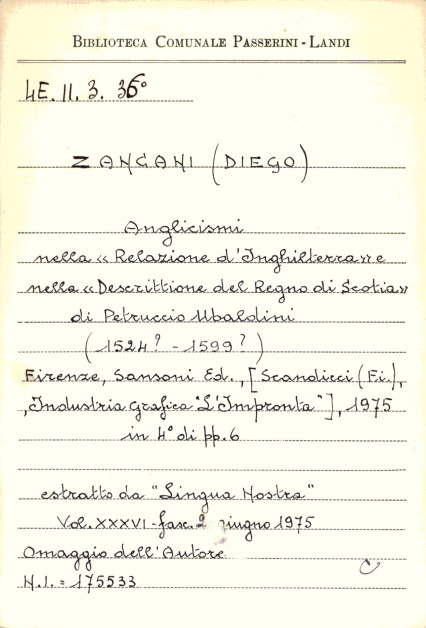 BIBLIOTECA COMUNALE PASSERINI-LANDI
4E. II. 3. 36°
ZANCANI (DIEGO)
Anglicismi
nella « Relazione d'Inghilterra» e
nella «Descrittione del Regno di Scotia»
di Petruccio Ubaldini
(1524? - 1599?)
Firenze, Sansoni Ed., [Scandicci (Fi.),
"Industria Grafica "L'Impronta"], 1975
in 4° di pp. 6
estratto da "Lingua Nostra"
Vol. XXXVI - fasc. 2 giugno 1975
Omaggio dell'Autore
N.I. = 175533